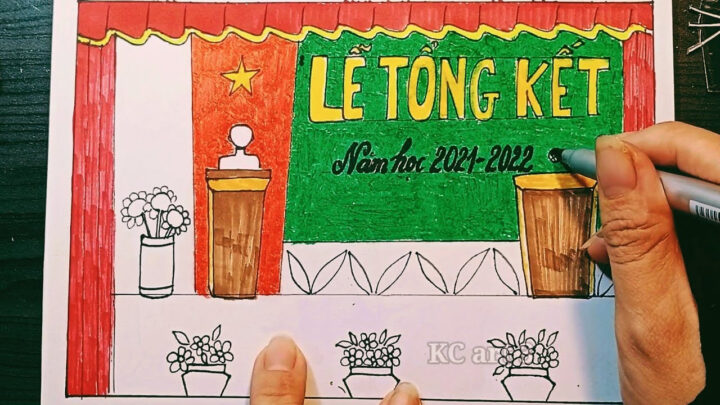 LỄ TỔNG KẾT
Năm học 2021-2022
KC